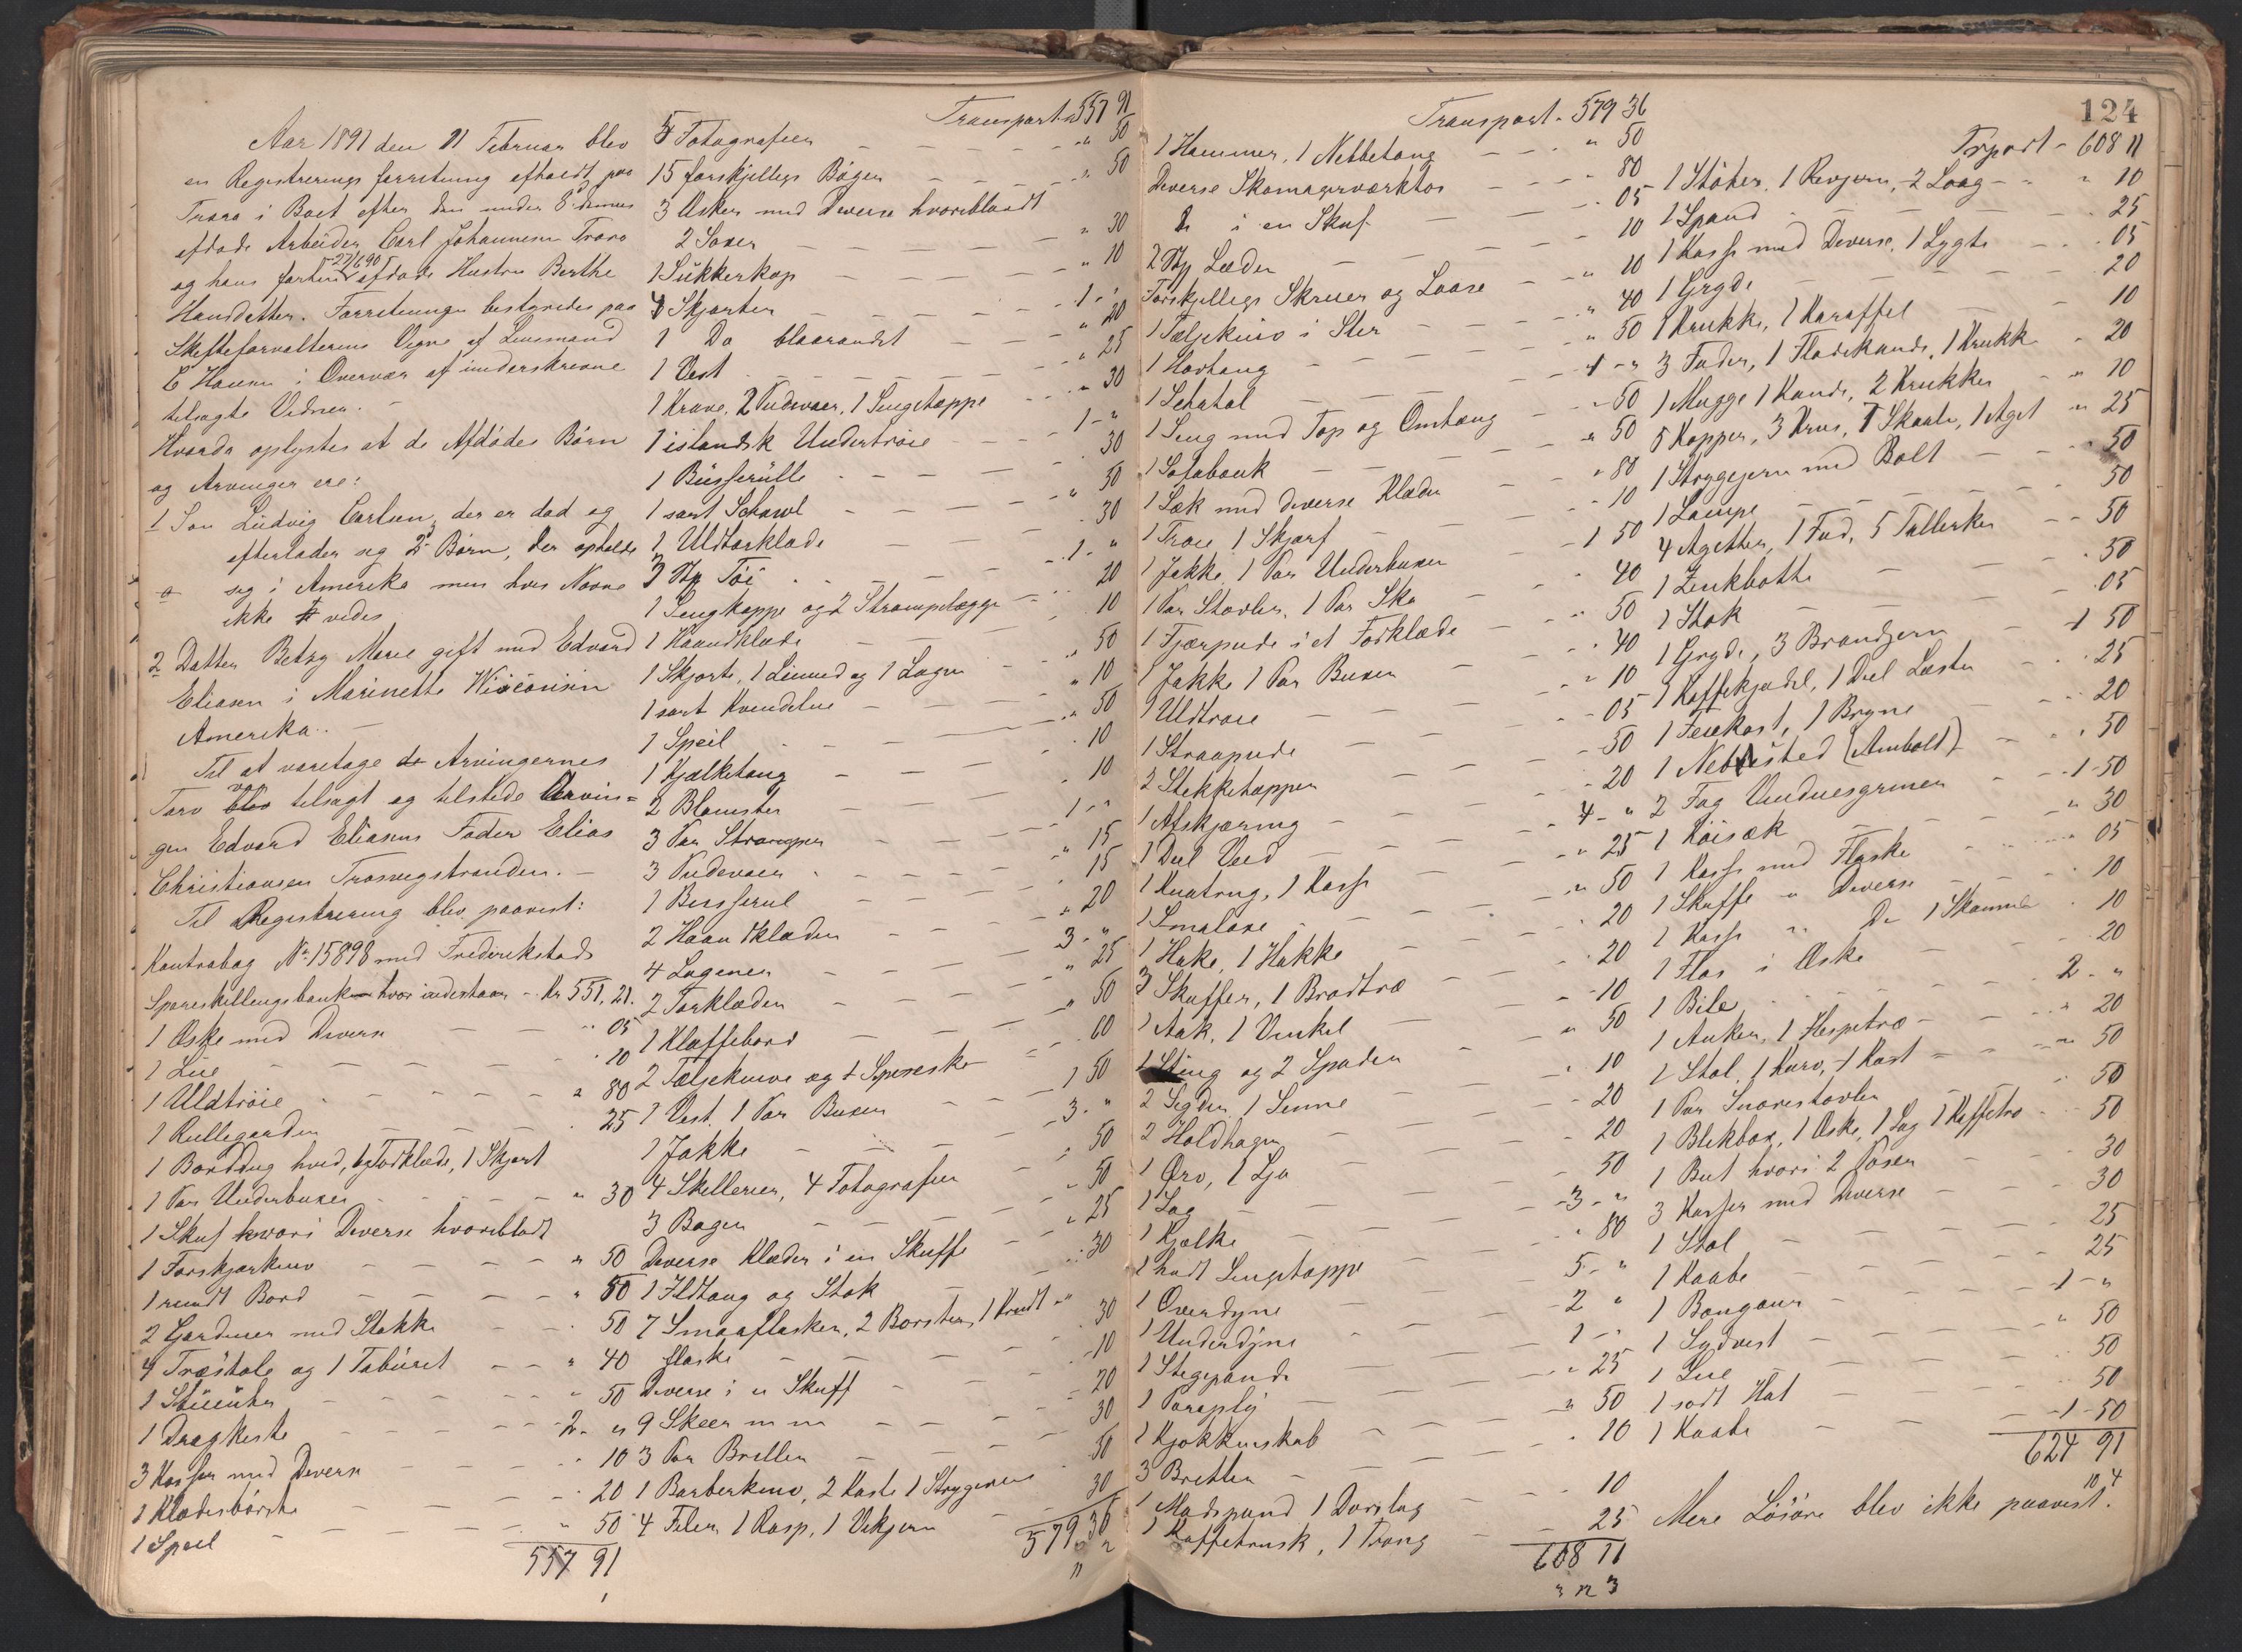 Aar 1891 den 11 Februar blev
en Registrerings forretning afholdt paa
Traro i Boet efter den under 8 dennes
afdøde Arbeider Carl Johannesen Traro
og hans forhen 27/6 90 afdøde Hustru Berthe
Hansdatter. Forretningen bestyredes paa
Skifteforvalterens Vegne af Lensmand
C Hansen i Overvær af underskrevne
tilsagte Vidner. –
Hvorda oplystes at de Afdødes Børn
og Arvinger ere:
1 Søn Ludvig Carlsen, der er død og
efterlader sig 2 Børn, der opholde
sig i Amerika men hvis Navne
ikke vides
2 Datter Betzy Marie gift med Edvard
Eliasen i Marinette Wisconsin
Amerika. –
Til at varetage Arvingernes
Tarv var tilsagt og tilstede Arvin=
gen Edvard Eliasens Fader Elias
Christiansen Trosvigstranden. –
Til Registrering blev paavist:
Kontrabog No 15898 med Frederikstads
Spareskillingsbank hvori indestaar – Kr 551,21.
1 Æske med Diverse " 05
1 Lue " 10
1 Uldtrøie " 80
1 Rullegardin " 25
1 Borddug hvid, 1 Forklæde, 1 Skjørt
1 Par Underbuxer " 30
1 Skuf hvori Diverse hvoriblodt
1 Forskjærkniv " 50
1 rundt Bord " 50
2 Gardiner med Stokke " 50
4 Træstole og 1 Taburet " 40
1 Stueuhr " 50
1 Dragkiste 2 "
3 Kasser med Diverse " 10
1 Klædesbørste " 20
1 Speil " 50
557 91
Transport 557 91
5 Fotografier " 50
15 forskjellige Bøger " 50
3 Æsker med Diverse hvoriblandt
2 Saxer " 30
1 Sukkerkop " 10
4 Skjorter 1 "
1 Do blaarandet " 20
1 Vest " 25
1 Krave, 2 Pudevaer, 1 Sengetæppe " 30
1 islandsk Undertrøie 1 "
1 Busserulle " 30
1 sort Schawl " 50
1 Uldtørklæde " 30
3 Stk Tøi 1 "
1 Sengkappe og 2 Strømpelægge " 20
1 Haandklæde " 10
1 Skjorte, 1 Linned og 1 Lagen " 50
1 sort Kvindelue " 10
1 Speil " 50
1 Kjælketang " 10
2 Blomster " 10
3 Par Strømper 1 "
3 Pudevaer " 15
1 Busserul " 15
2 Haandklæder " 20
4 Lagener 3 "
2 Tørklæder " 25
1 Klaffebord " 50
2 Tæljeknive og 1 Spiseske " 60
1 Vest, 1 Par Buxer 1 50
1 Jakke 3 "
4 Skillerier, 4 Fotografier " 50
3 Bøger " 50
Diverse Klæder i en Skuffe " 25
1 Ildtang og Stok " 30
7 Smaaflasker, 2 Børster, 1 Krudt
flaske " 30
Diverse i en Skuff " 10
9 Skeer m m " 20
3 Par Briller " 30
1 Barberkniv, 2 Koste 1 Strygerem " 50
4 Filer, 1 Rasp, 1 Vikjern " 30
579 36
Transport 579 36
1 Hammer, 1 Nebbetang " 50
Diverse Skomagerværktøi " 80
Do i en Skuf " 05
2 Stk Læder " 10
Forskjellige Skruer og Laase " 10
1 Tæljekniv i Slir " 40
1 Hovtang " 50
1 Schatol 4 "
1 Seng med Top og Omhæng " 50
1 Sofabænk " 50
1 Sæk med diverse Klæder " 80
1 Trøie 1 Skjørt " 10
1 Jakke 1 Par Underbuxer 1 50
1 Par Støvler, 1 Par Sko " 40
1 Fjærpude i et Forklæde " 50
1 Jakke 1 Par Buxer " 40
1 Uldtrøie " 10
1 Straapude " 05
2 Stikketæpper " 50
1 Afskjæring " 20
1 Del Ved 4 "
1 Knatrug, 1 Kasse " 25
1 Smaløxe " 50
1 Hake, 1 Hakke " 20
3 Skuffer, 1 Brødtræ " 20
1 Aak, 1 Vinkel " 10
1 Sting og 2 Spader " 50
2 Segder, 1 Linne " 10
2 Holdhager " 20
1 Øro, 1 Lja " 20
1 Sag " 50
1 Kjælke 3 "
1 hvidt Sengetæppe " 80
1 Overdyne 5 "
1 Underdyne 2 "
1 Stegepande 1 "
1 Paraply " 25
1 Kjøkkenskab " 50
3 Bretter " 10
1 Madspand 1 Dørslag " 10
1 Kaffebrusk, 1 Traug " 25
608 11
124
Trsport 608 11
1 Støter, 1 Revjern, 2 Laag " 10
1 Spand " 25
1 Kasse med Diverse, 1 Lygte " 05
1 Gryde " 20
1 Krukke, 1 Karaffel " 10
3 Fader, 1 Flødekande, 1 Krukke " 20
1 Mugge 1 Kande, 2 Krukker " 10
5 Kopper, 3 Krus, 7 Skaale, 1 Aget " 25
1 Strygejern med Bolt " 50
1 Lampe " 50
4 Agetter, 1 Fad, 5 Tallerker " 50
1 Zinkbøtte " 50
1 Stok " 05
1 Gryde, 3 Brandjern 1 50
1 Kaffekjedel, 1 Del Læster " 25
1 Feiekost, 1 Bryne " 20
1 Nebsted (Ambolt) " 50
2 Fag Vinduesgriner 1 50
1 Høisæk " 30
1 Kasse med Flaske " 05
1 Skuffe " Diverse " 10
1 Kasse " Do 1 Skammel " 10
1 Flos i Æske " 20
1 Bile 2 "
1 Anker, 1 Hespetræ " 20
1 Stol, 1 Kurv, 1 Kost " 50
1 Par Snørestøvler " 50
1 Blikbox, 1 Æske, 1 Sag 1 Kaffetro " 50
1 But hvori 2 Poser " 30
3 Kasser med Diverse " 30
1 Stol " 25
1 Kaabe " 25
1 Bongour 1 "
1 Sydvest " 50
1 Lue " 50
1 sort Hat " 50
1 Kaabe 1 50
624 91
Mere Løsøre blev ikke paavist.